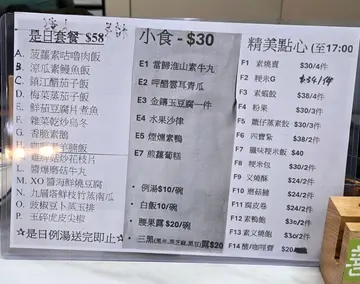 是日套餐 $58
A. 菠蘿素咕嚕肉飯
B. 涼瓜素鰻魚飯
C. 鎮江醋茄子飯
D. 梅菜蒸茄子飯
E. 鮮茄豆腐片煮魚
F. 雜菜乾炒烏冬
G. 香脆素鵝
H. 飯
炒花枝片
L. 醬爆磨菇牛丸
M. XO醬海鮮燒豆腐
N. 九層塔鮮枝竹蒸南瓜
O. 豉椒豆卜蒸玉排
P. 玉碎虎皮尖椒
☆是日例湯送完即止☆
小食 - $30
E1 當歸淮山素牛丸
E2 呷醋雲耳青瓜
E3 金磚玉豆腐一件
E4 水果沙律
E5 煙燻素鴨
E7 煎蘿蔔糕
・例湯$10/碗
・白飯$10/碗
・腰果露$20/碗
・三黑(黑米,黑芝麻,黑豆)露$20
精美點心 (至17:00
F1 素燒賣 $30/4件
F2 粳米G $34/1件
F3 素蝦餃 $38/4件
F4 粉果 $30/3件
F5 蠔仔蒸素餃 $30/3件
F6 四寶紮 $38/2件
F7 臘味粳米飯 $40
F8 粳米包 $30/2件
F9 叉燒酥 $24/2件
F10 蘑菇脯 $24/2件
F11 腐皮卷 $24/2件
F12 素鴨飽 $30/2件
F13 素叉燒飽 $30/2件
F14 醋/咖喱齋 $20